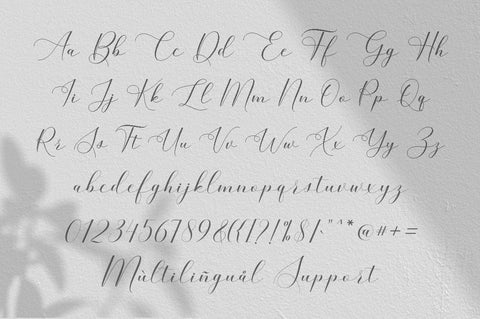 Aa Bb Cc Dd Ee Ff Gg Hh
Ii Jj Kk Ll Mm Nn Oo Pp Qq
Rr Ss Tt Uu Vv Ww Xx Yy Zz
abcdefghijklmnopqrstuvwxyz
0123456789&({[?!%$/-"^*@#+=
Mùltiliñguål Support